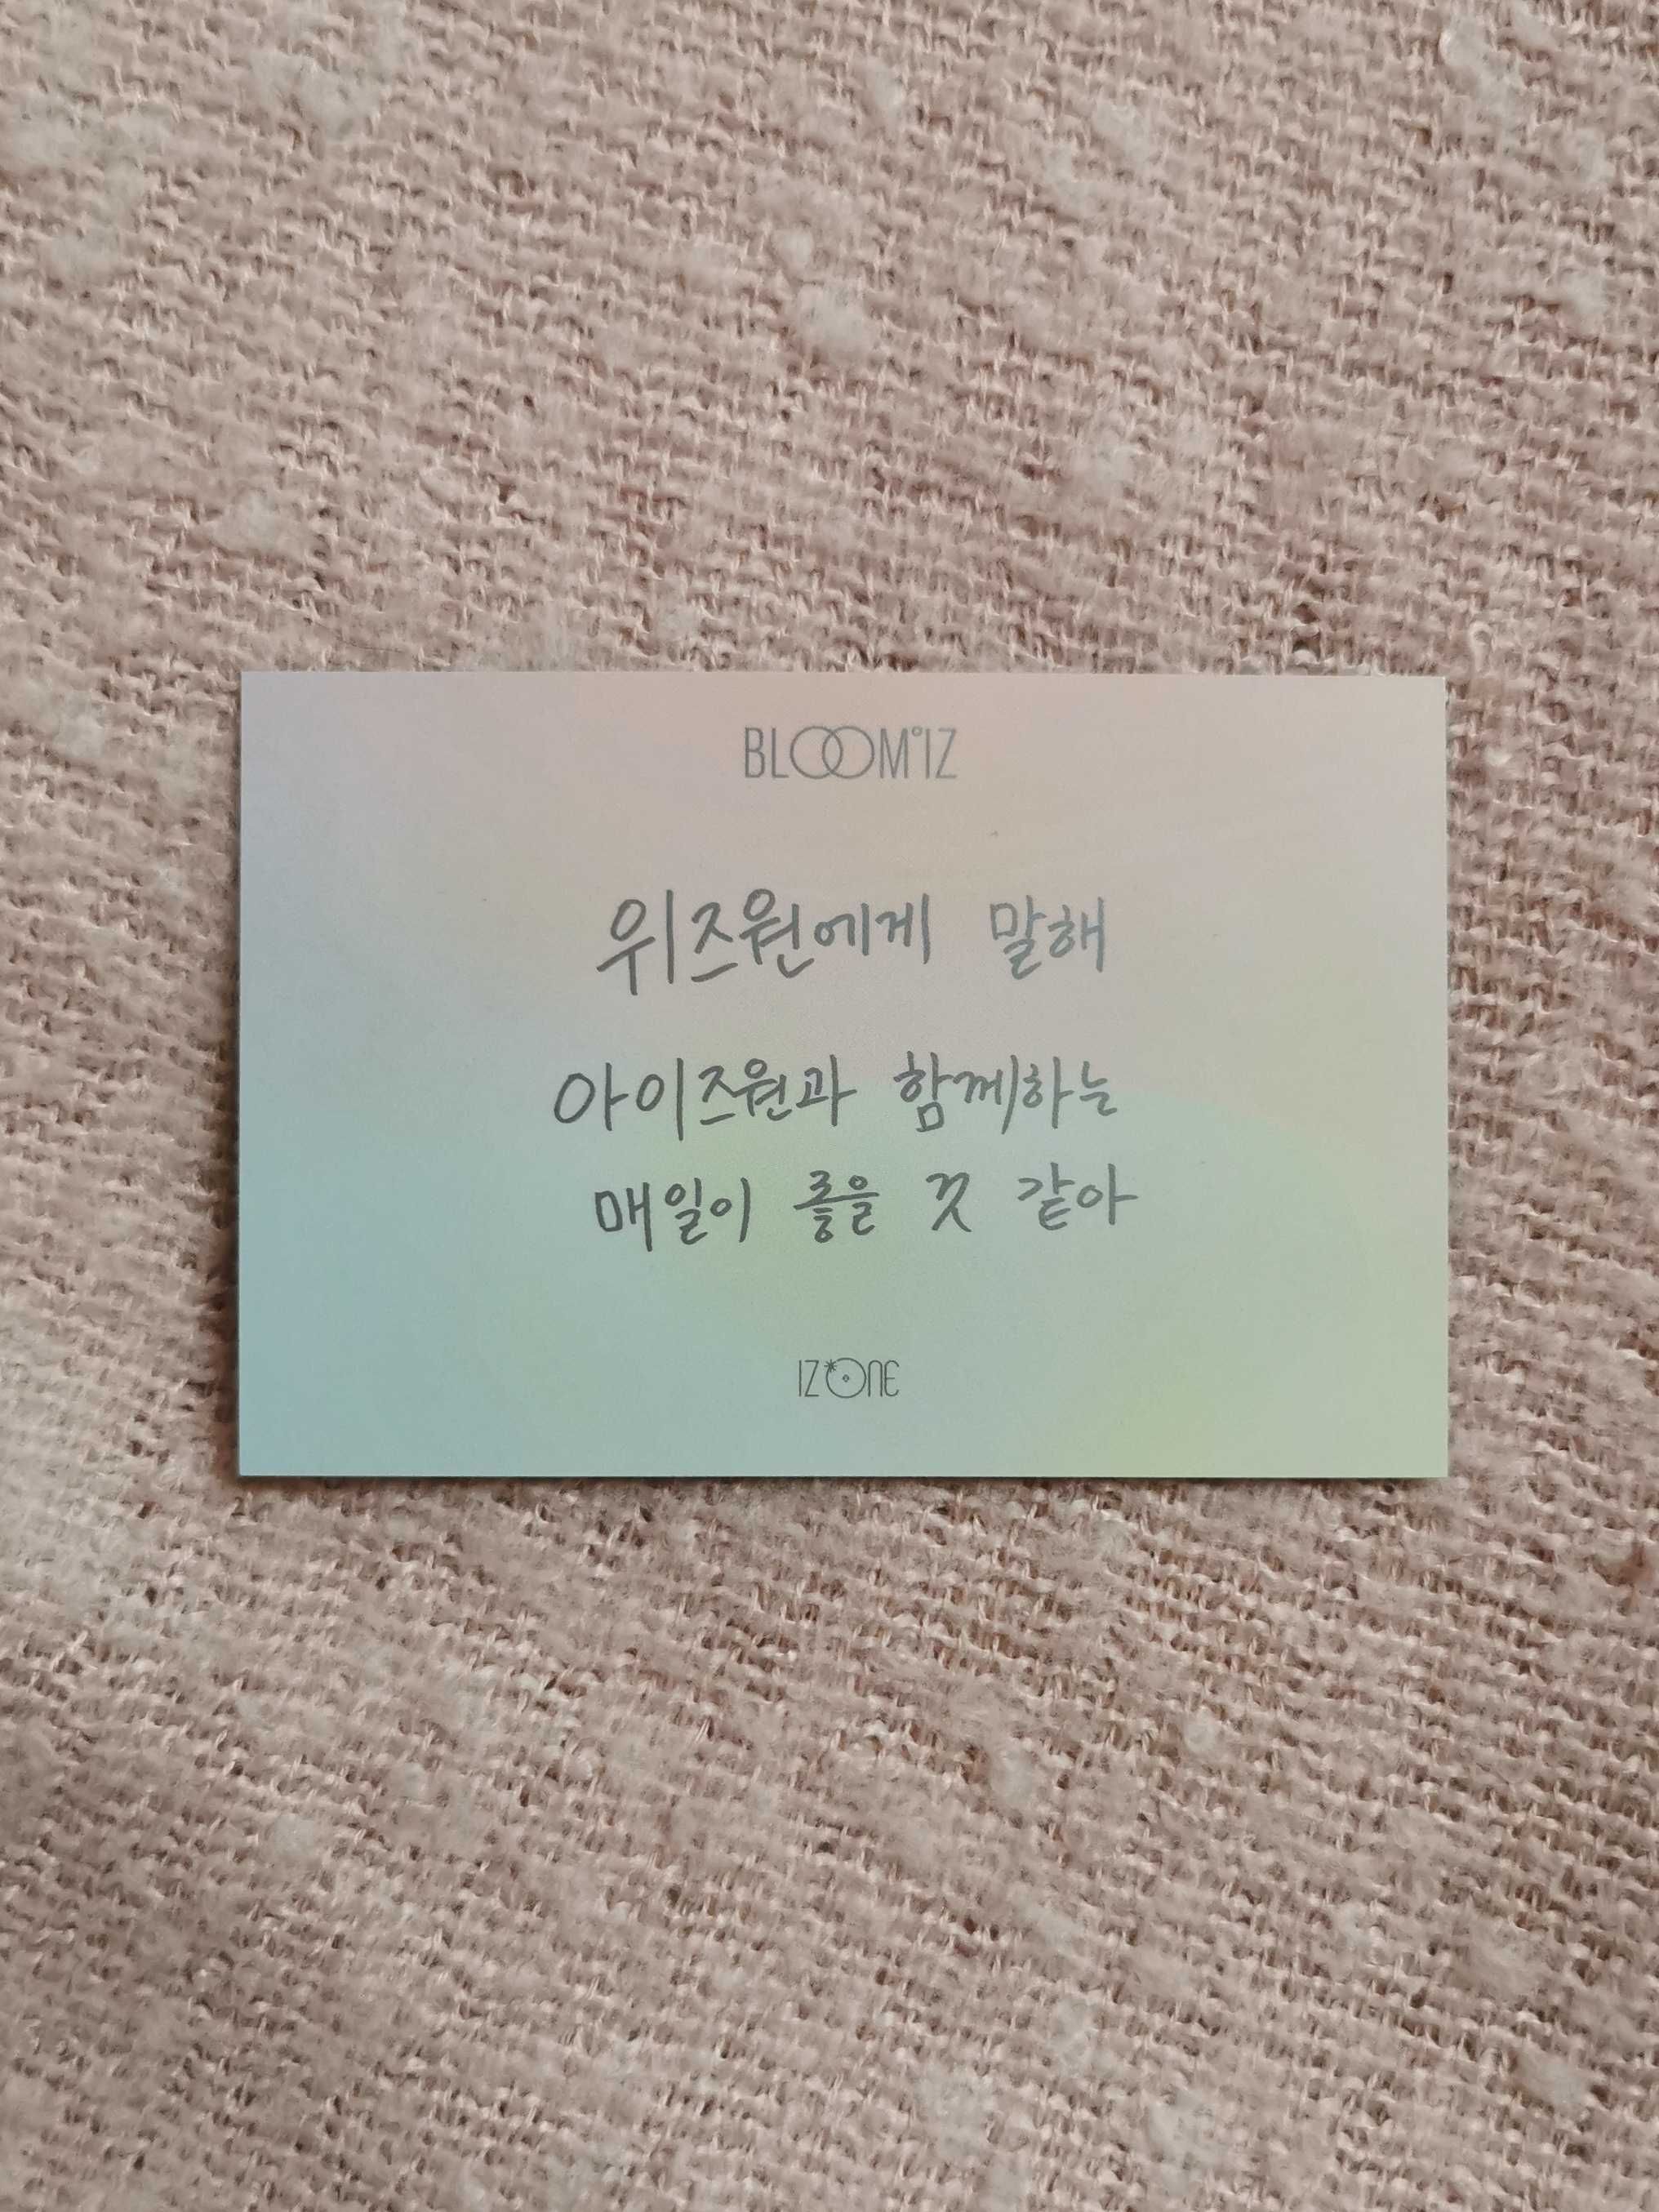 BLOOM*IZ
위즈원에게 말해
아이즈원과 함께하는
매일이 좋을 것 같아
IZ*ONE